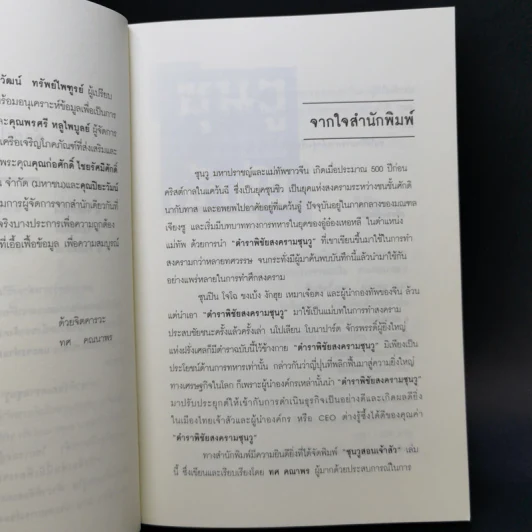 วัฒน์ ทรัพย์ไพฑูรย์ ผู้เปรียบ
ร้อมอนุเคราะห์ข้อมูลเพื่อเป็นการ
ะคุณพรศรี หลูไพบูลย์ ผู้จัดการ
เครือเจริญโภคภัณฑ์ที่ส่งเสริมและ
พระคุณคุณก่อศักดิ์ ไชยรัศมีศักดิ์
น จำกัด (มหาชน)และคุณปิยะวัฒน์
มการผู้จัดการจากสำนักเดียวกันที่
จริงบางประการเพื่อความถูกต้อง
ที่เอื้อเฟื้อข้อมูล เพื่อความสมบูรณ์
ด้วยจิตคารวะ
ทศ คณนาพร
ซุนวู
จากใจสำนักพิมพ์
ซุนวู มหาปราชญ์และแม่ทัพชาวจีน เกิดเมื่อประมาณ 500 ปีก่อน
คริสต์กาลในแคว้นฉี ซึ่งเป็นยุคชุนชิว เป็นยุคแห่งสงครามระหว่างชนชั้นศักดิ
นากับทาส และอพยพไปอาศัยอยู่ที่แคว้นอู๋ ปัจจุบันอยู่ในภาคกลางของมณฑล
เจียงซู และเริ่มมีบทบาททางการทหารในยุคของอู๋อ๋องเหอหลี ในตำแหน่ง
แม่ทัพ ด้วยการนำ "ตำราพิชัยสงครามซุนวู" ที่เขาเขียนขึ้นมาใช้ในการทำ
สงครามกว่าหลายทศวรรษ จนกระทั่งมีผู้มาค้นพบบันทึกนี้แล้วนำมาใช้กัน
อย่างแพร่หลายในการทำศึกสงคราม
ซุนปิน โจโฉ ขงเบ้ง งักฮุย เหมาเจ๋อตง และผู้นำกองทัพของจีน ล้วน
แต่นำเอา "ตำราพิชัยสงครามซุนวู" มาใช้เป็นแม่บทในการทำสงคราม
ประสบชัยชนะครั้งแล้วครั้งเล่า นโปเลียน โบนาปาร์ต จักรพรรดิ์ผู้ยิ่งใหญ่
แห่งฝรั่งเศสก็มีตำราฉบับนี้ไว้ข้างกาย "ตำราพิชัยสงครามซุนวู" มิเพียงเป็น
ประโยชน์ด้านการทหารเท่านั้น กล่าวกันว่าญี่ปุ่นที่พลิกฟื้นมาสู่ความยิ่งใหญ่
ทางเศรษฐกิจในโลก ก็เพราะผู้นำองค์กรเหล่านั้นนำ "ตำราพิชัยสงครามซุนวู"
มาปรับประยุกต์ให้เข้ากับการดำเนินธุรกิจเป็นอย่างดีและเกิดผลดียิ่ง
ในเมืองไทยเจ้าสัวและผู้นำองค์กร หรือ CEO ต่างรู้ซึ้งได้ดีของคุณค่า
"ตำราพิชัยสงครามซุนวู"
ทางสำนักพิมพ์มีความยินดียิ่งที่ได้จัดพิมพ์ "ซุนวูสอนเจ้าสัว" เล่ม
นี้ ซึ่งเขียนและเรียบเรียงโดย ทศ คณนาพร ผู้มากด้วยประสบการณ์ในการ